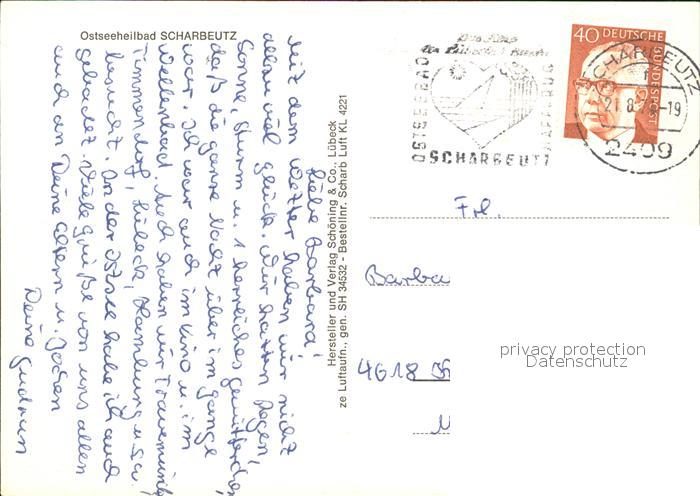 Ostseeheilbad SCHARBEUTZ
Liebe Barbara!
Mit dem Wetter haben wir nicht
allzu viel Glück. Wir hatten Regen,
Sonne, Sturm u. 1 herrliches Gewitterchen,
daß die ganze Nacht über im gange
war. Ich war auch im Kino u. im
Wellenbad. Auch haben wir Travemünde,
Timmendorf, Lübeck, Hamburg usw.
besucht. In der Ostsee habe ich auch
gebadet. Viele Grüße von uns allen
auch an Deine Eltern u. Jochen
Deine Gudrun
Hersteller und Verlag Schöning & Co., Lübeck
ze Luftaufn., gen. SH 34532 - Bestellnr. Scharb Luft KL 4221
OSTSEEBAD
SCHARBEUTZ
40 DEUTSCHE
BUNDESPOST
SCHARBEUTZ
21.8. -19
2409
Frl.
Barba
4618
privacy protection
Datenschutz